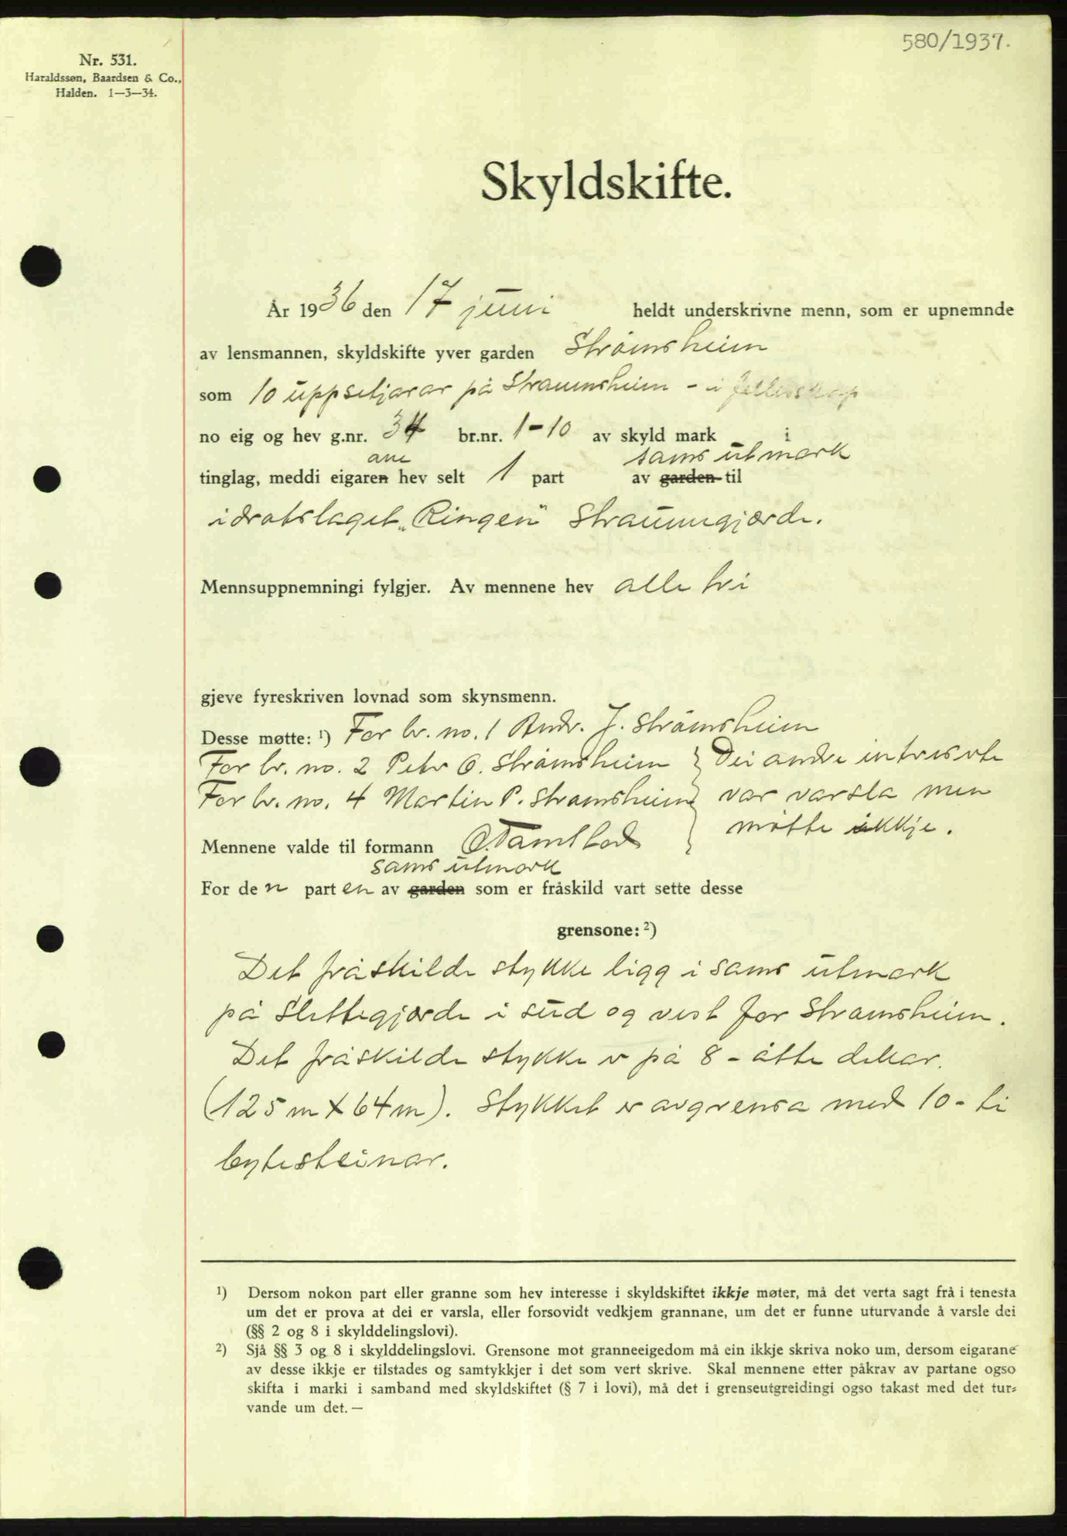 580/1937.
Nr. 531.
Haraldssøn, Baardsen & Co.,
Halden. 1—3—34.
Skyldskifte.
År 1936 den 17 juni heldt underskrivne menn, som er upnemnde
av lensmannen, skyldskifte yver garden Strømsheim
som 10 uppsetjarar på Straumsheim - i felleskap
no eig og hev g.nr. 34 br.nr. 1-10 av skyld mark i
ane sams utmark
tinglag, meddi eigaren hev selt 1 part av garden til
idrotslaget „Ringen" Straumgjerde.
Mennsuppnemningi fylgjer. Av mennene hev alle tri
gjeve fyreskriven lovnad som skynsmenn.
Desse møtte: ¹) For br. no. 1 Andr. J. Strømsheim
For br. no. 2 Peter O. Strømsheim } Dei andre intreserte
For br. no. 4 Martin P. Strømsheim } var varsla men
møtte ikkje.
Mennene valde til formann
sams utmark
For den parten av garden som er fråskild vart sette desse
grensone: ²)
Det fråskilde stykke ligg i sams utmark
på Slettegjerde i sud og vest for Strømsheim.
Det fråskilde stykke er på 8 - åtte dekar.
(125 m X 64 m). Stykket er avgrensa med 10 - ti
bytesteinar.
¹) Dersom nokon part eller granne som hev interesse i skyldskiftet ikkje møter, må det verta sagt frå i tenesta
um det er prova at dei er varsla, eller forsovidt vedkjem grannane, um det er funne uturvande å varsle dei
(§§ 2 og 8 i skylddelingslovi).
²) Sjå §§ 3 og 8 i skylddelingslovi. Grensone mot granneeigedom må ein ikkje skriva noko um, dersom eigarane
av desse ikkje er tilstades og samtykkjer i det som vert skrive. Skal mennene etter påkrav av partane ogso
skifta i marki i samband med skyldskiftet (§ 7 i lovi), må det i grenseutgreidingi ogso takast med det tur-
vande um det. —